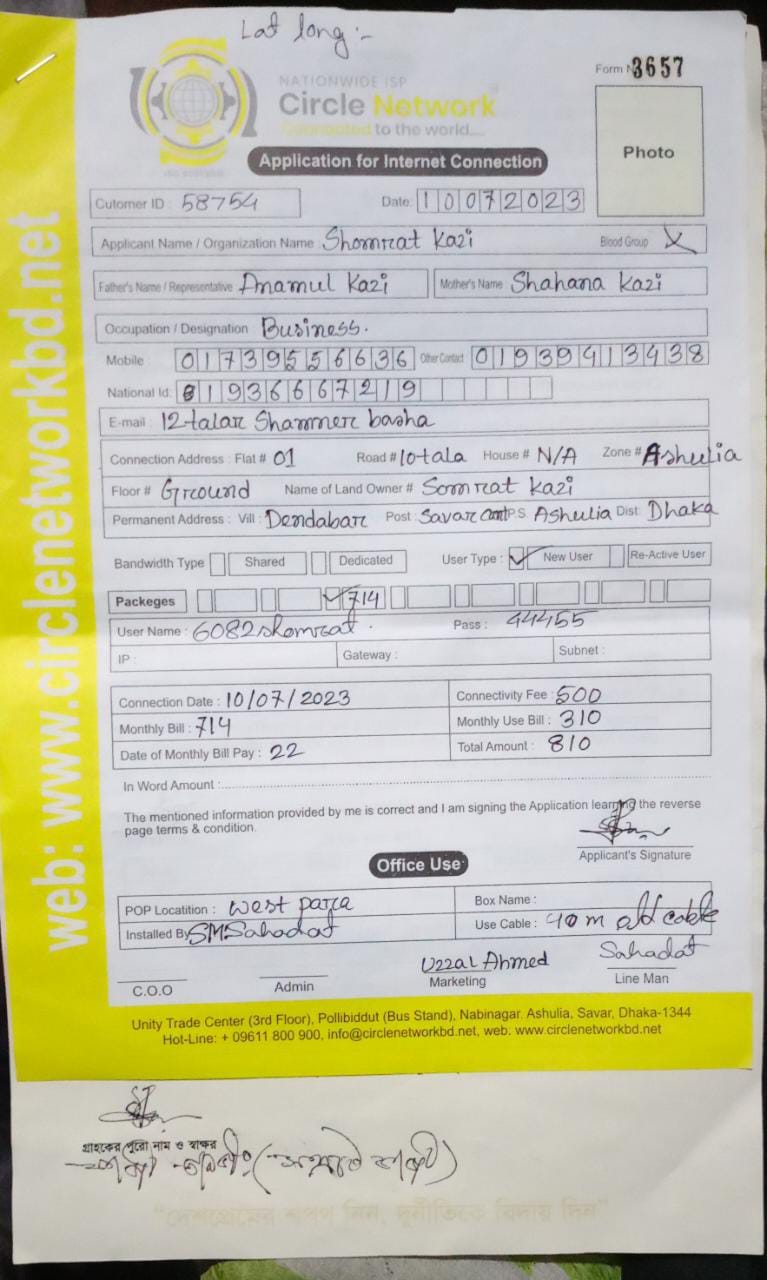 Lat long :-
Form N 3657
NATIONWIDE ISP
Circle Network
Connected to the world....
Photo
Application for Internet Connection
Cutomer ID : 58754 Date: 10072023
Applicant Name / Organization Name : Shomrat Kazi Blood Group X
Father's Name / Representative : Anamul Kazi Mother's Name Shahana Kazi
Occupation / Designation Business.
Mobile : 01739556636 Other Contact 01939413438
National Id: 81936667219
E-mail : 12-talar Shammer basha
Connection Address : Flat # 01 Road # 10-tala House # N/A Zone # Ashulia
Floor # Ground Name of Land Owner # Somrat Kazi
Permanent Address : Vill : Dendabar Post : Savar Cant P.S. Ashulia Dist: Dhaka
Bandwidth Type Shared Dedicated User Type : New User Re-Active User
Packeges 714
User Name : 6082shomrat. Pass : 44455
IP : Gateway : Subnet :
Connection Date : 10/07/2023 Connectivity Fee : 500
Monthly Bill : 714 Monthly Use Bill : 310
Date of Monthly Bill Pay : 22 Total Amount : 810
In Word Amount :
The mentioned information provided by me is correct and I am signing the Application learning the reverse
page terms & condition.
Applicant's Signature
Office Use
POP Locatition : west para Box Name :
Installed By SM Sahadat Use Cable : 40 m old cable
Uzzal Ahmed Sahadat
C.O.O Admin Marketing Line Man
Unity Trade Center (3rd Floor), Pollibiddut (Bus Stand), Nabinagar. Ashulia, Savar, Dhaka-1344
Hot-Line: + 09611 800 900, info@circlenetworkbd.net, web: www.circlenetworkbd.net
web: www.circlenetworkbd.net
গ্রাহকের পুরো নাম ও স্বাক্ষর
"দেশপ্রেমের শপথ নিন, দুর্নীতিকে বিদায় দিন"